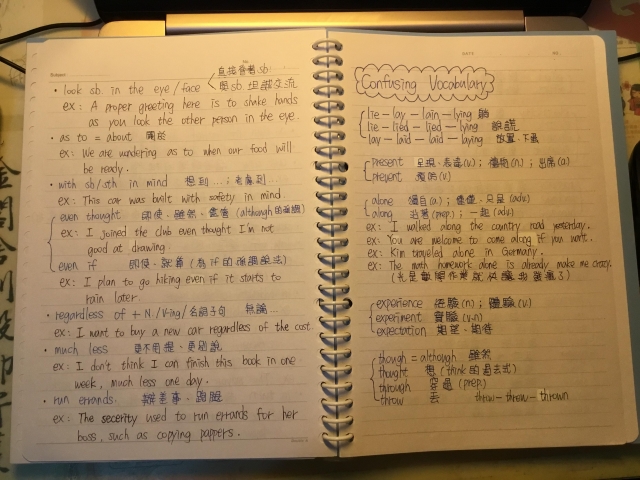 直接看著sb.
• look sb. in the eye / face
與sb 坦誠交流
ex: A proper greeting here is to shake hands
as you look the other person in the eye.
• as to = about 關於
ex: We are wondering as to when our food will
be ready.
• with sb/sth in mind 想到...;考慮到...
ex: This car was built with safety in mind.
even thought 即使、雖然、儘管 (although的強調)
ex: I joined the club even thought I'm not
good at drawing.
even if 即使、就算 (為if的強調說法)
ex: I plan to go hiking even if it starts to
rain later.
• regardless of + N / V-ing / 名詞子句 無論...
ex: I want to buy a new car regardless of the cost.
• much less 更不用說、更別說
ex: I don't think I can finish this book in one
week, much less one day.
• run errands 辦差事、跑腿
ex: The secerity used to run errands for her
boss, such as copying pappers.
Confusing Vocabulary
lie – lay – lain – lying 躺
lie – lied – lied – lying 說謊
lay – laid – laid – laying 放置、下蛋
present 呈現、表達(v.); 禮物(n.); 出席(a.)
prevent 預防(v.)
alone 獨自(a.); 僅僅、只是(adv.)
along 沿著(prep.); 一起(adv.)
ex: I walked along the country road yesterday.
ex: You are welcome to come along if you want.
ex: Kim traveled alone in Germany.
ex: The math homework alone is already make me crazy.
(光是數學作業就快讓我發瘋了)
experience 經驗(n.); 體驗(v.)
experiment 實驗(v.n)
expectation 期望、期待
though = although 雖然
thought 想(think的過去式)
through 穿過(prep.)
throw 丟 throw – threw – thrown